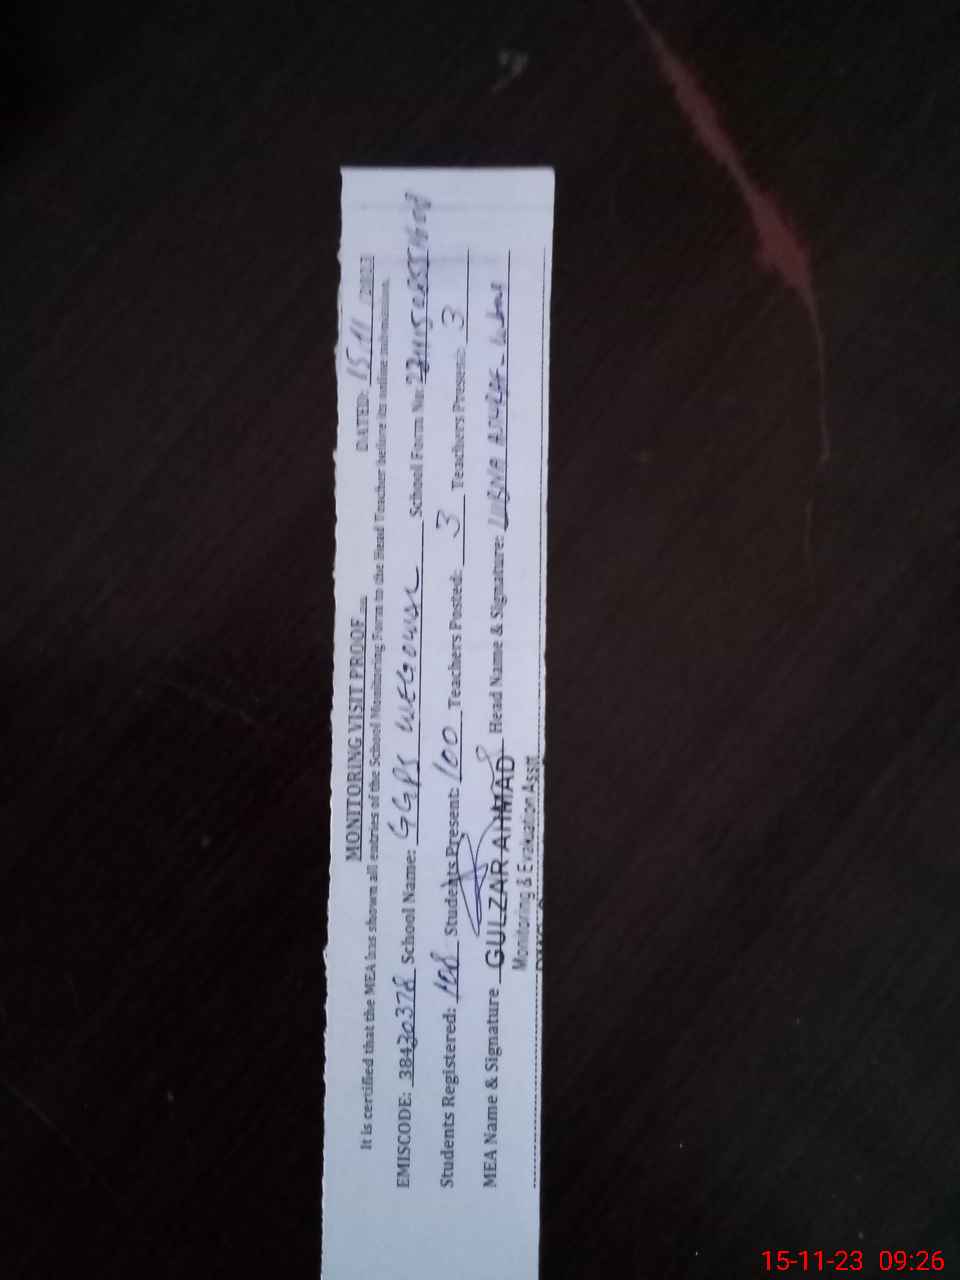 MONITORING VISIT PROOF
DATED: 15-11/2023
It is certified that the MEA has shown all entries of the School Monitoring Form to the Head Teacher before its online submission.
EMISCODE: 38430378 School Name: GGPS WEGOWAL School Form No:
Students Registered: 108 Students Present: 100 Teachers Posted: 3 Teachers Present: 3
MEA Name & Signature GULZAR AHMAD Head Name & Signature: LUBNA ASHRAF - Lubna
Monitoring & Evaluation Asstt
15-11-23 09:26